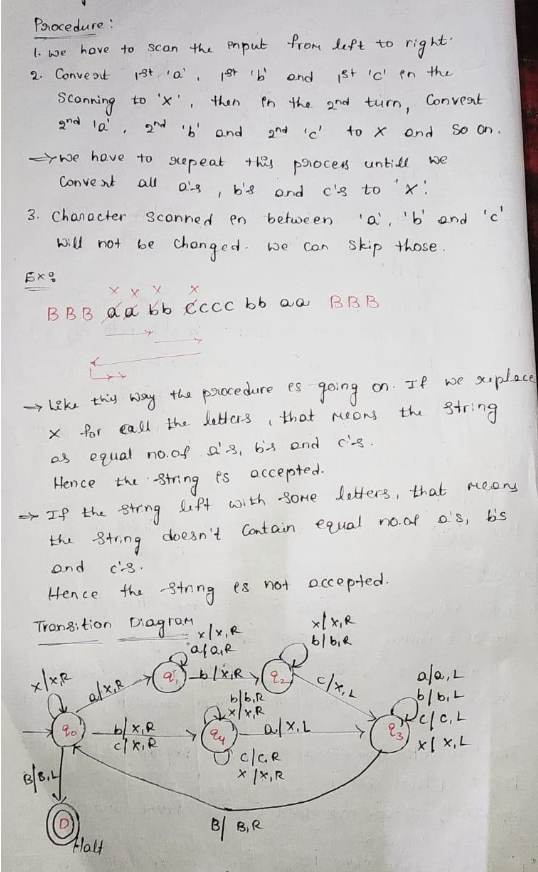 Procedure :
1. we have to scan the input from left to right.
2. Convert 1st 'a', 1st 'b' and 1st 'c' in the
Scanning to 'x', then in the 2nd turn, Convert
2nd 'a', 2nd 'b' and 2nd 'c' to x and so on.
⇒ we have to repeat this process untill we
Convert all a's, b's and c's to 'x'.
3. Character Scanned in between 'a', 'b' and 'c'
will not be changed. we can skip those.
Ex:
x x x x
B B B a a b b c c c c b b a a B B B
→ Like this way the procedure is going on. If we replace
x for call the letters, that means the string
as equal no.of a's, b's and c's.
Hence the string is accepted.
⇒ If the string left with some letters, that means
the string doesn't contain equal no.of a's, b's
and c's.
Hence the string is not accepted.
Transition Diagram
x|x,R
a|a,R
x|x,R
b|b,R
x|x,R
a|x,R
q1
b|x,R
q2
c|x,L
a|a,L
b|b,L
c|c,L
x|x,L
q0
b|x,R
c|x,R
b|b,R
x|x,R
q4
c|c,R
x|x,R
a|x,L
q3
B|B,L
D
Halt
B| B,R